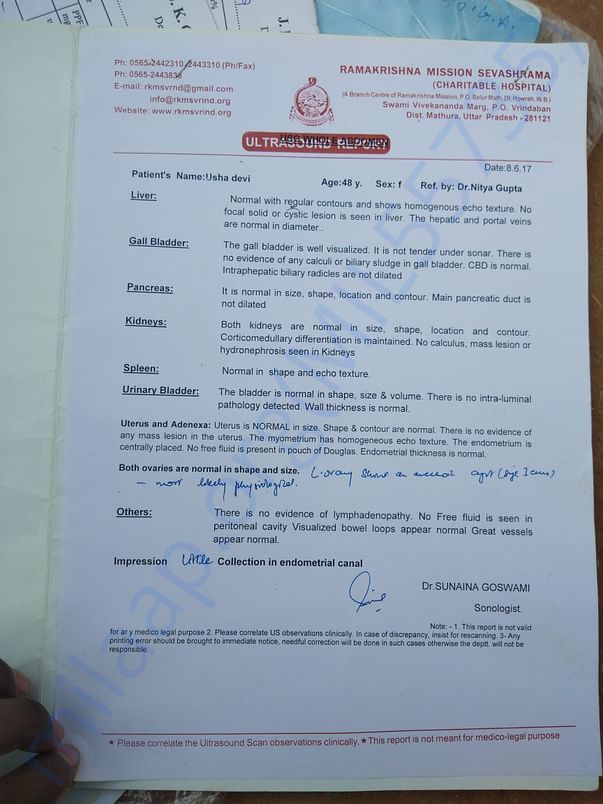 Ph: 0565-2442310, 2443310 (Ph/Fax)
Ph: 0565-2443838
E-mail: rkmsvrnd@gmail.com
info@rkmsvrind.org
Website: www.rkmsvrind.org
RAMAKRISHNA MISSION SEVASHRAMA
(CHARITABLE HOSPITAL)
(A Branch Centre of Ramakrishna Mission, P.O. Belur Math, Dt. Howrah, W.B.)
Swami Vivekananda Marg, P.O. Vrindaban
Dist. Mathura, Uttar Pradesh - 281121
USG WHOLE ABDOMEN
ULTRASOUND REPORT
Date:8.6.17
Patient's Name:Usha devi Age:48 y. Sex: f Ref. by: Dr.Nitya Gupta
Liver: Normal with regular contours and shows homogenous echo texture. No
focal solid or cystic lesion is seen in liver. The hepatic and portal veins
are normal in diameter..
Gall Bladder: The gall bladder is well visualized. It is not tender under sonar. There is
no evidence of any calculi or biliary sludge in gall bladder. CBD is normal.
Intraphepatic biliary radicles are not dilated
Pancreas: It is normal in size, shape, location and contour. Main pancreatic duct is
not dilated
Kidneys: Both kidneys are normal in size, shape, location and contour.
Corticomedullary differentiation is maintained. No calculus, mass lesion or
hydronephrosis seen in Kidneys
Spleen: Normal in shape and echo texture.
Urinary Bladder: The bladder is normal in shape, size & volume. There is no intra-luminal
pathology detected. Wall thickness is normal.
Uterus and Adenexa: Uterus is NORMAL in size. Shape & contour are normal. There is no evidence of
any mass lesion in the uterus. The myometrium has homogeneous echo texture. The endometrium is
centrally placed. No free fluid is present in pouch of Douglas. Endometrial thickness is normal.
Both ovaries are normal in shape and size. L-ovary shows an cyst (size 3 cms)
- most likely physiological.
Others: There is no evidence of lymphadenopathy. No Free fluid is seen in
peritoneal cavity Visualized bowel loops appear normal Great vessels
appear normal.
Impression Little Collection in endometrial canal
Dr.SUNAINA GOSWAMI
Sonologist.
Note: - 1. This report is not valid
for ar y medico legal purpose 2. Please correlate US observations clinically. In case of discrepancy, insist for rescanning. 3- Any
printing error should be brought to immediate notice, needful correction will be done in such cases otherwise the deptt. will not be
responsible.
* Please correlate the Ultrasound Scan observations clinically. * This report is not meant for medico-legal purpose